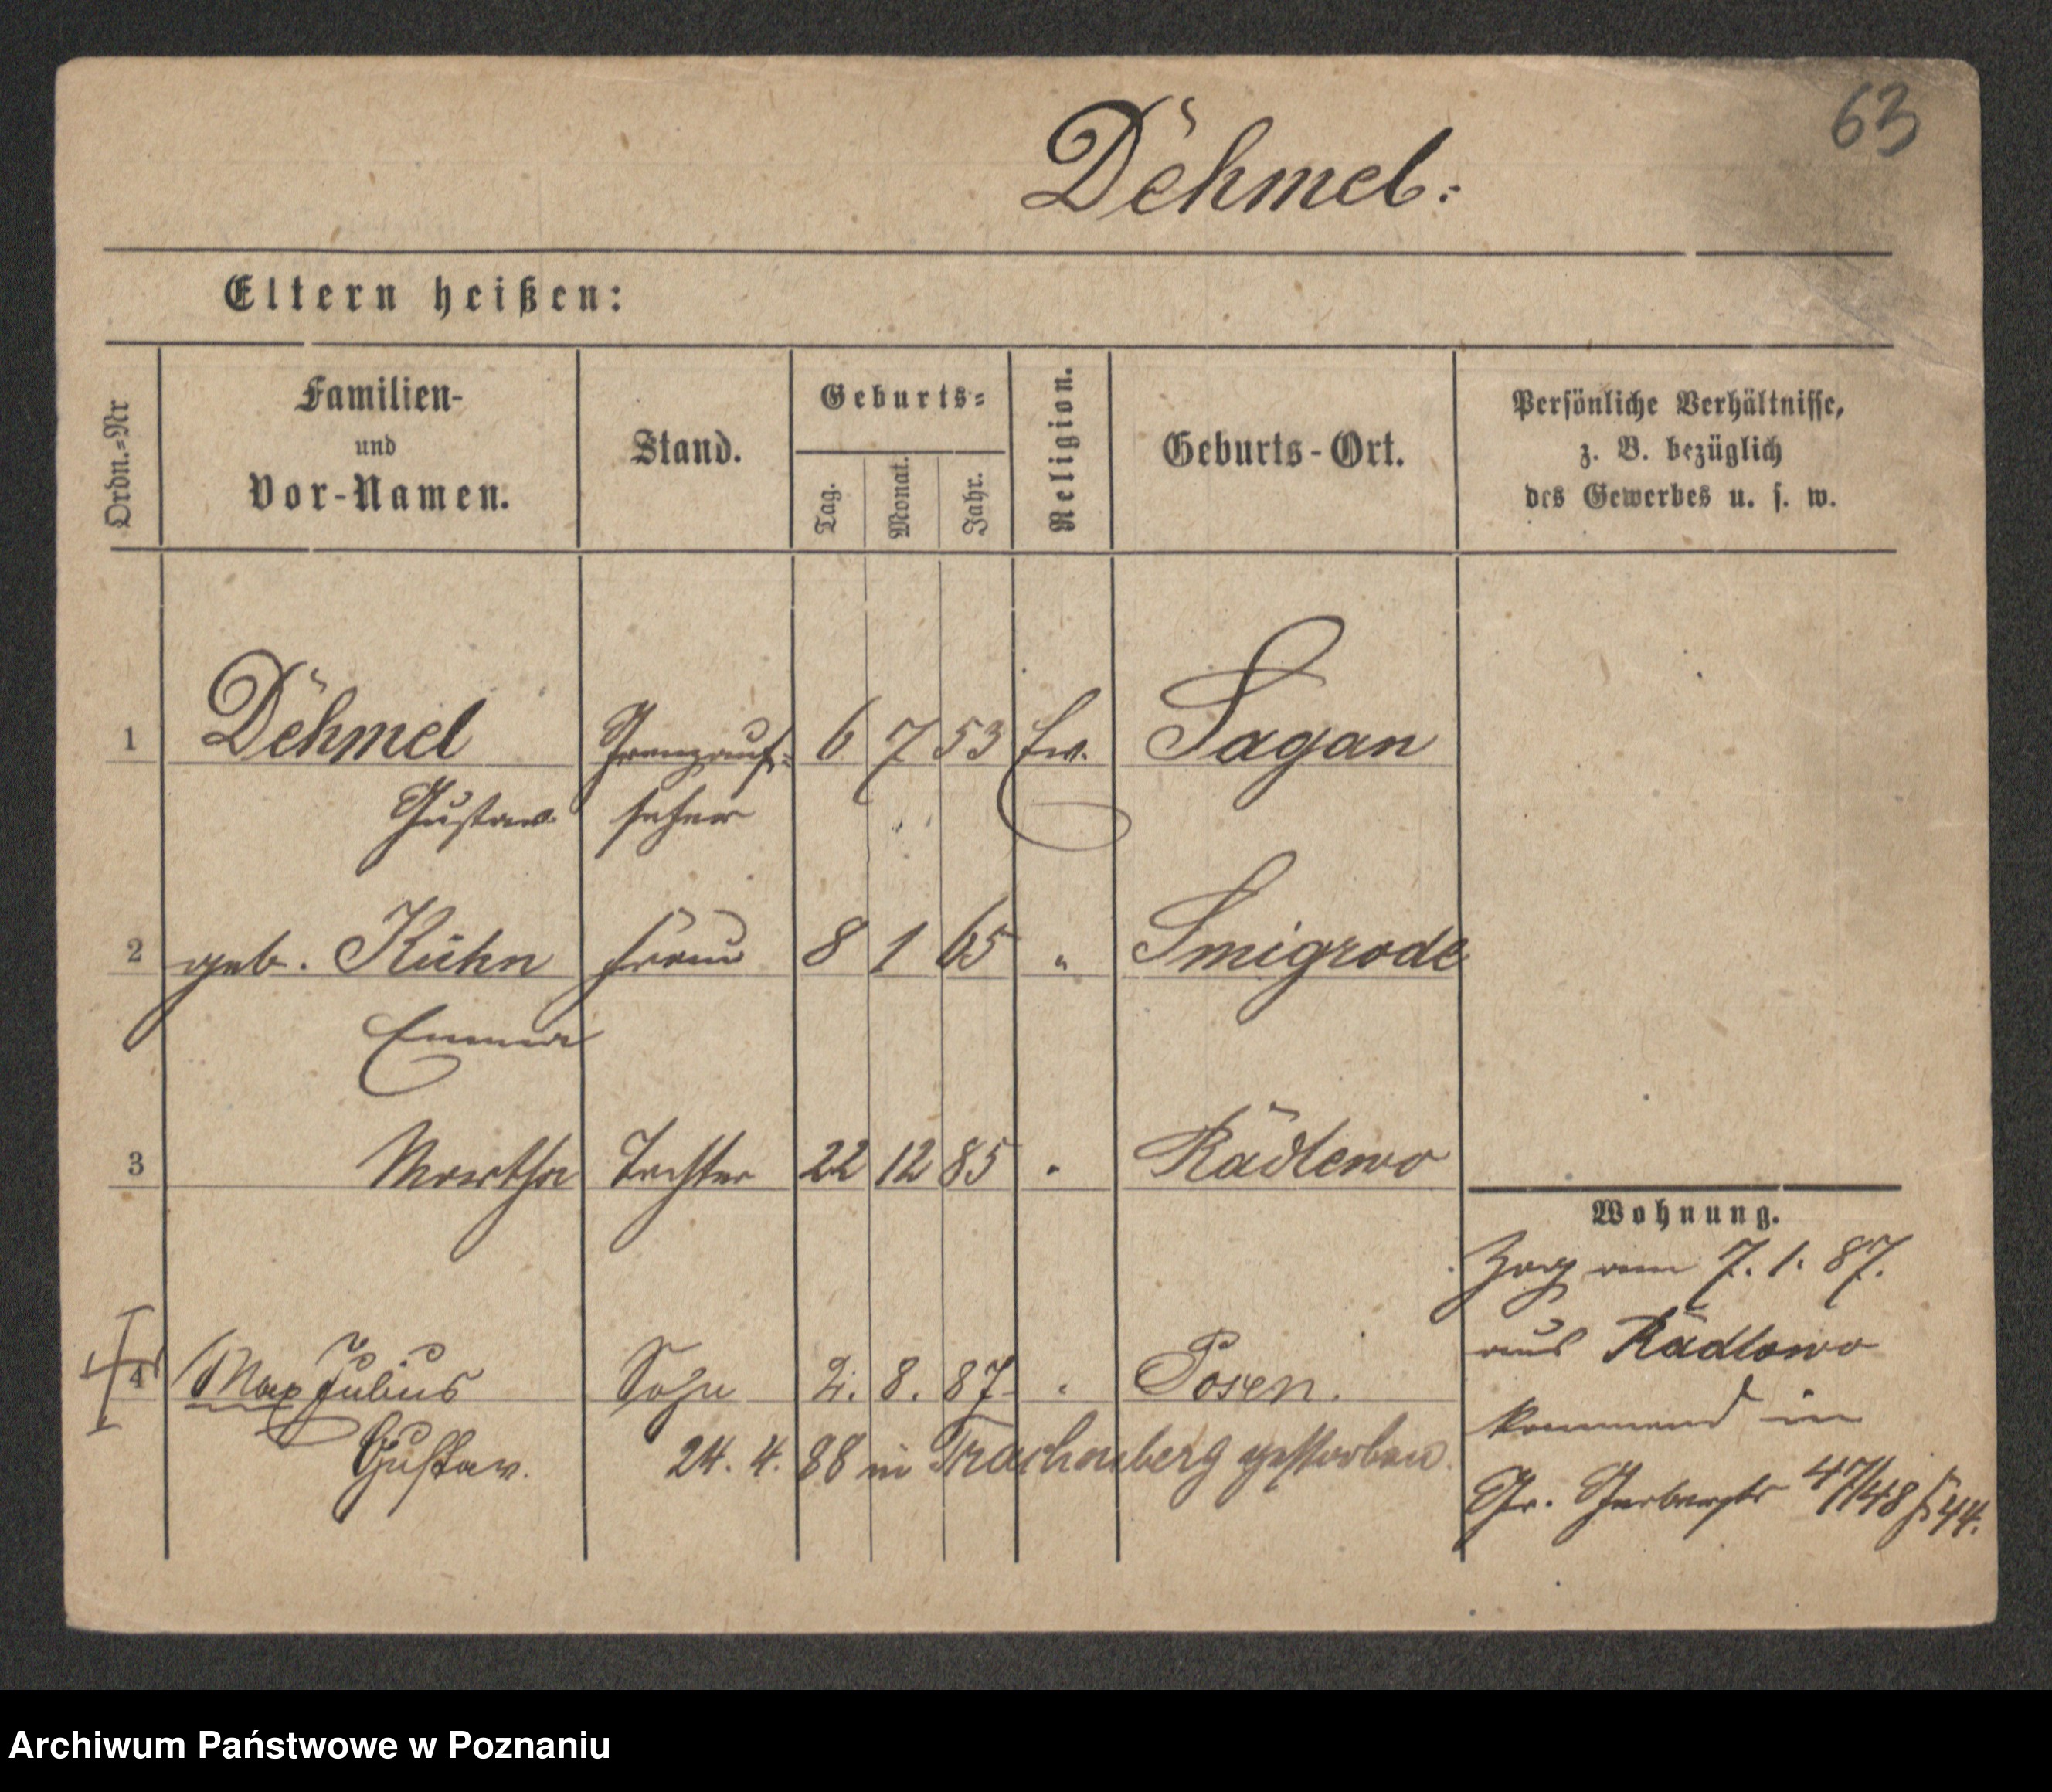 63
Dehmel:
Eltern heißen:
Ordn.=Nr
Familien-
und
Vor-Namen.
Stand.
Geburts=
Tag.
Monat.
Jahr.
Religion.
Geburts-Ort.
Persönliche Verhältnisse,
z. B. bezüglich
des Gewerbes u. s. w.
1 Dehmel Grenzauf= 6 7 53 Ev. Sagan
Gustav seher
2 geb. Kühn Frau 8 1 65 " Smigrode
Emma
3 Martha Tochter 22 12 85 " Rädlewo
Wohnung.
Zog am 7. 1. 87.
aus Rädlowo
kommend in
Gr. Gerberstr 47/48 44.
4 Max Julius Sohn 2. 8. 87 " Posen.
Gustav.
24. 4. 88 in Trachenberg gestorben.
Archiwum Państwowe w Poznaniu